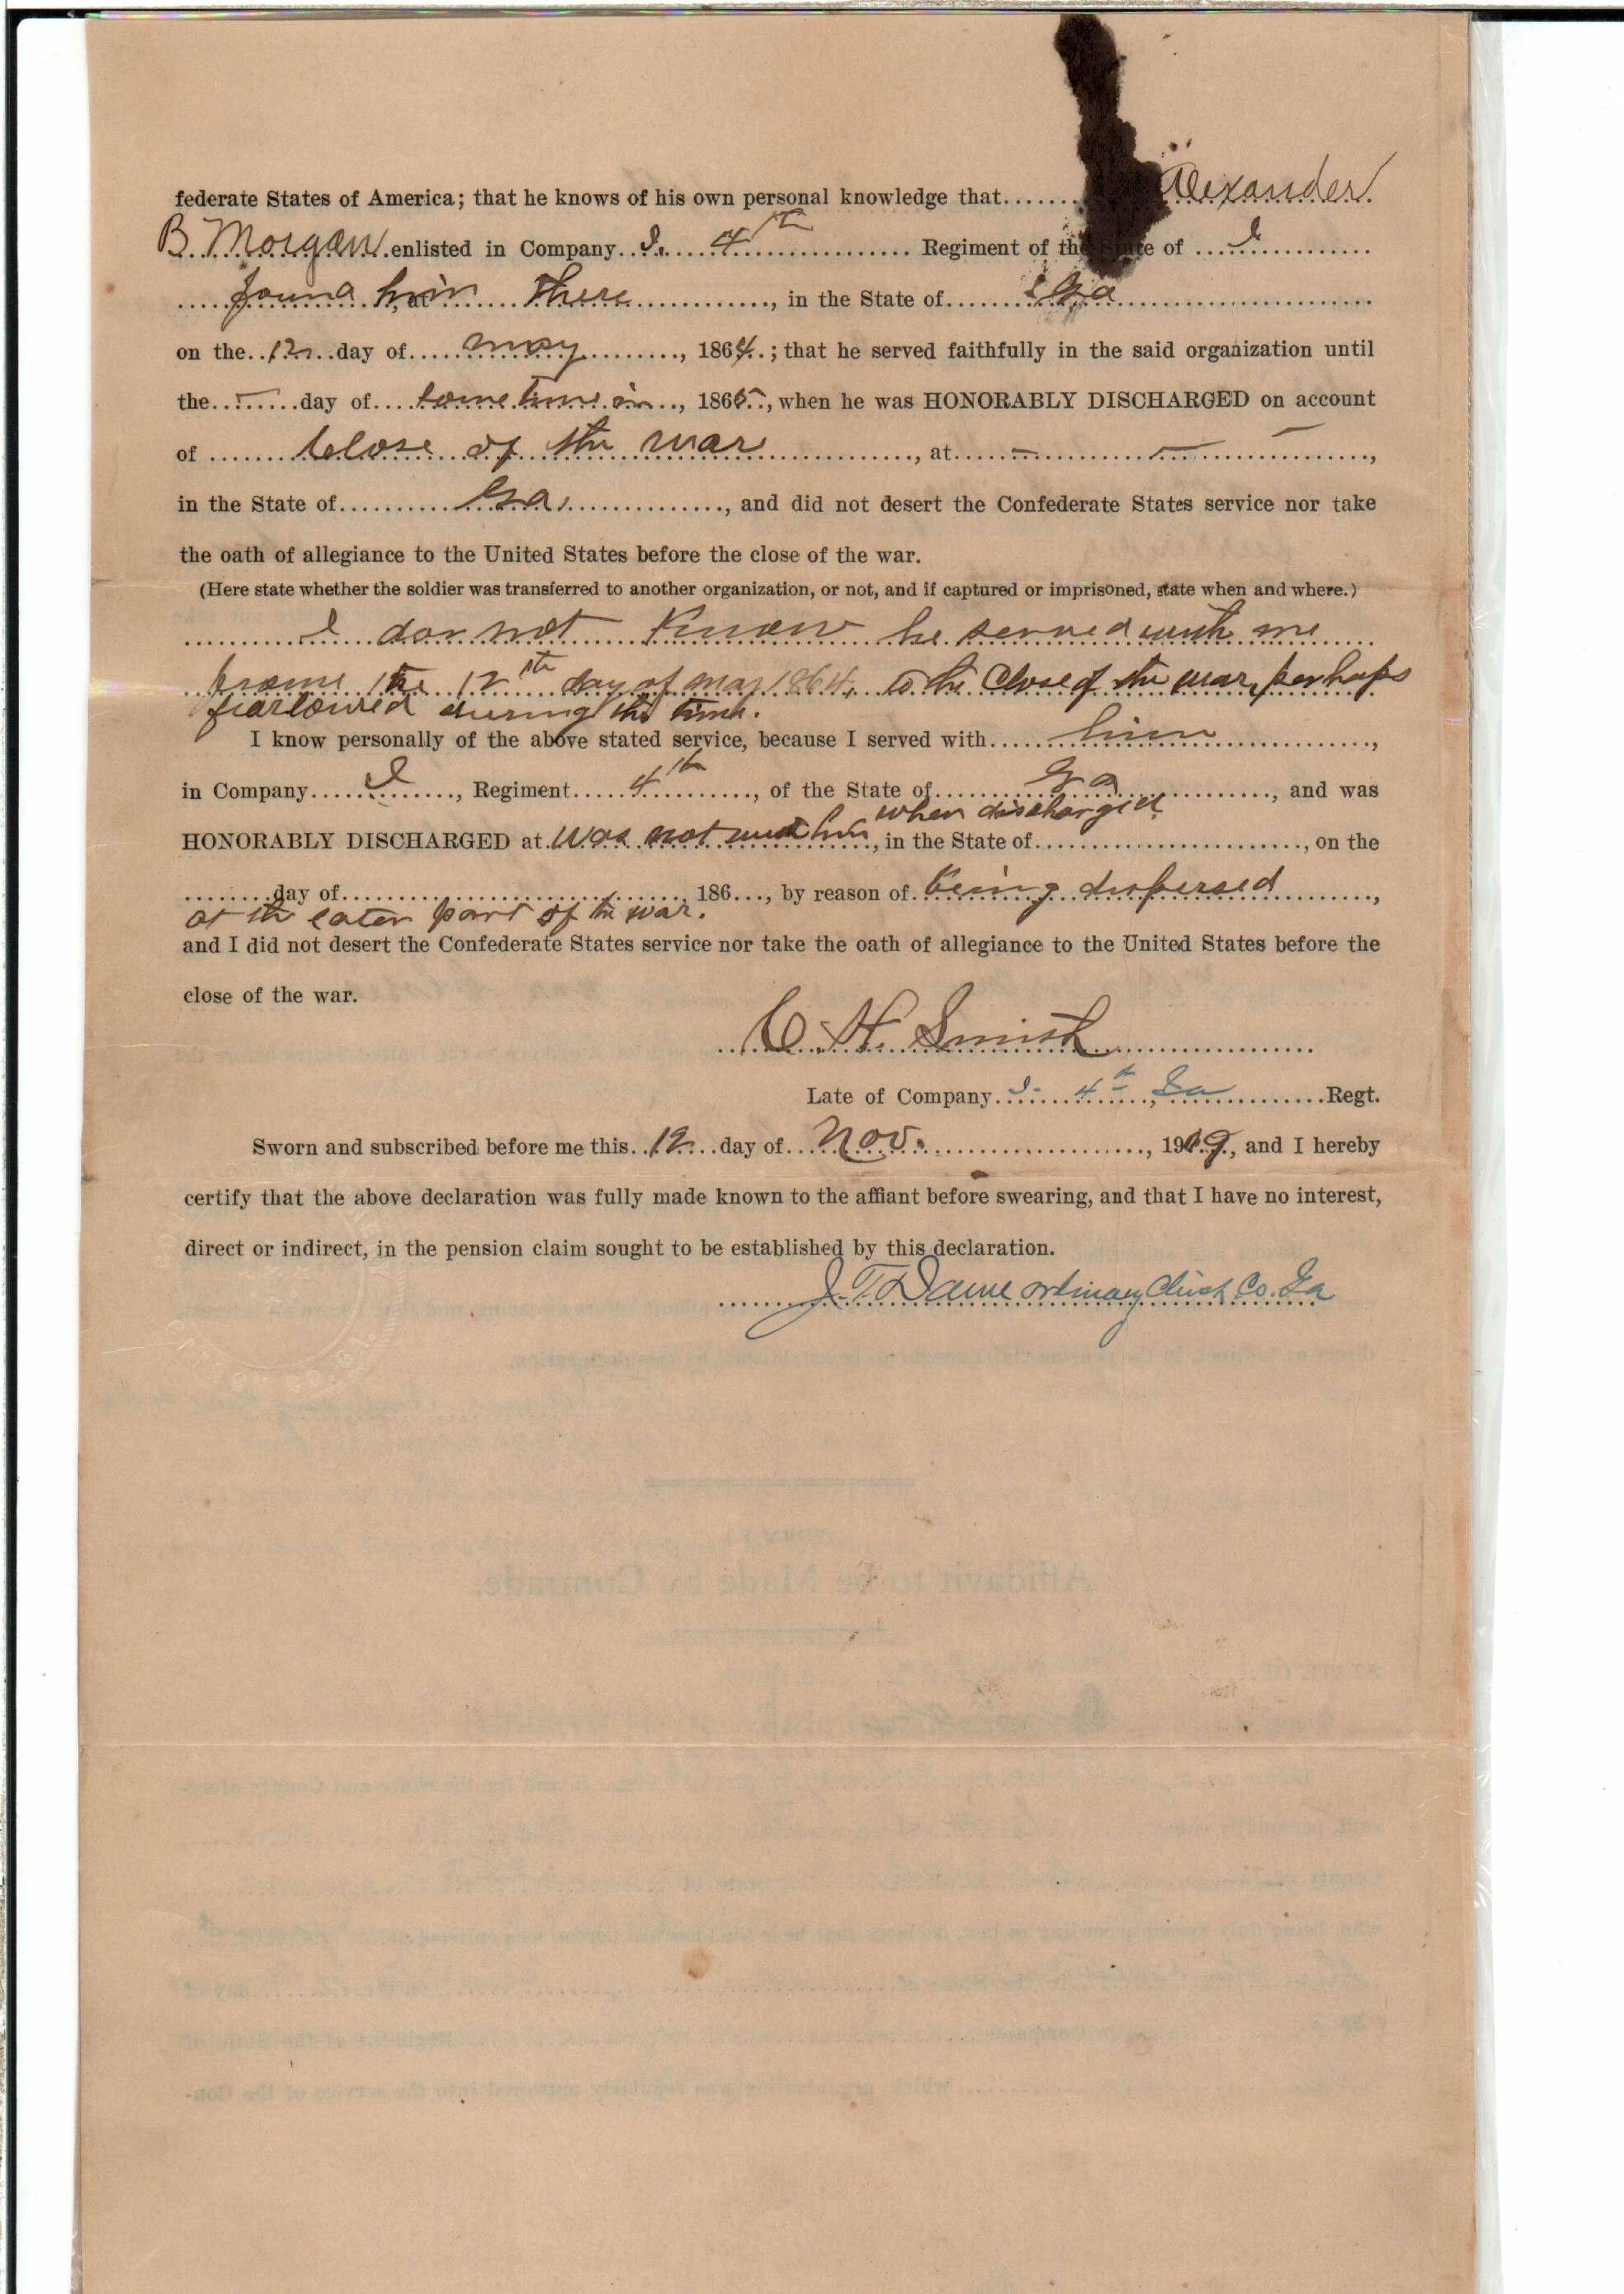 federate States of America; that he knows of his own personal knowledge that....... Alexander
B. Morgan enlisted in Company I. 4th Regiment of the State of I
found him at There, in the State of Ga
on the 12 day of may, 1864; that he served faithfully in the said organization until
the – day of some time in, 1865, when he was HONORABLY DISCHARGED on account
of Close of the war, at – – –,
in the State of Ga, and did not desert the Confederate States service nor take
the oath of allegiance to the United States before the close of the war.
(Here state whether the soldier was transferred to another organization, or not, and if captured or imprisoned, state when and where.)
I do not Know he served with me
from the 12th day of may 1864, to the Close of the war, perhaps
furloued during this time.
I know personally of the above stated service, because I served with him,
in Company I, Regiment 4th, of the State of Ga, and was
when discharged
HONORABLY DISCHARGED at was not with him, in the State of, on the
day of, 186..., by reason of being dispersed,
at the later part of the war.
and I did not desert the Confederate States service nor take the oath of allegiance to the United States before the
close of the war.
C. H. Smith
Late of Company I 4th, Ga Regt.
Sworn and subscribed before me this 12 day of Nov., 1919, and I hereby
certify that the above declaration was fully made known to the affiant before swearing, and that I have no interest,
direct or indirect, in the pension claim sought to be established by this declaration.
J. T. Dame ordinary Clinch Co. Ga